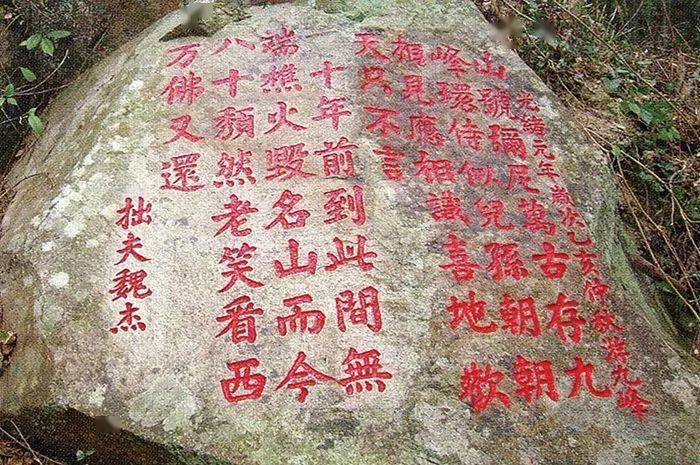 光緒元年歲次乙亥秋游九峰
山號彌尼萬古存九
峰環侍似兒孫朝朝
相見應相識喜地歡
天只不言
一十年前到此間無
端樵火毀名山而今
八十頹然老笑看西
万佛又還
拙夫魏杰